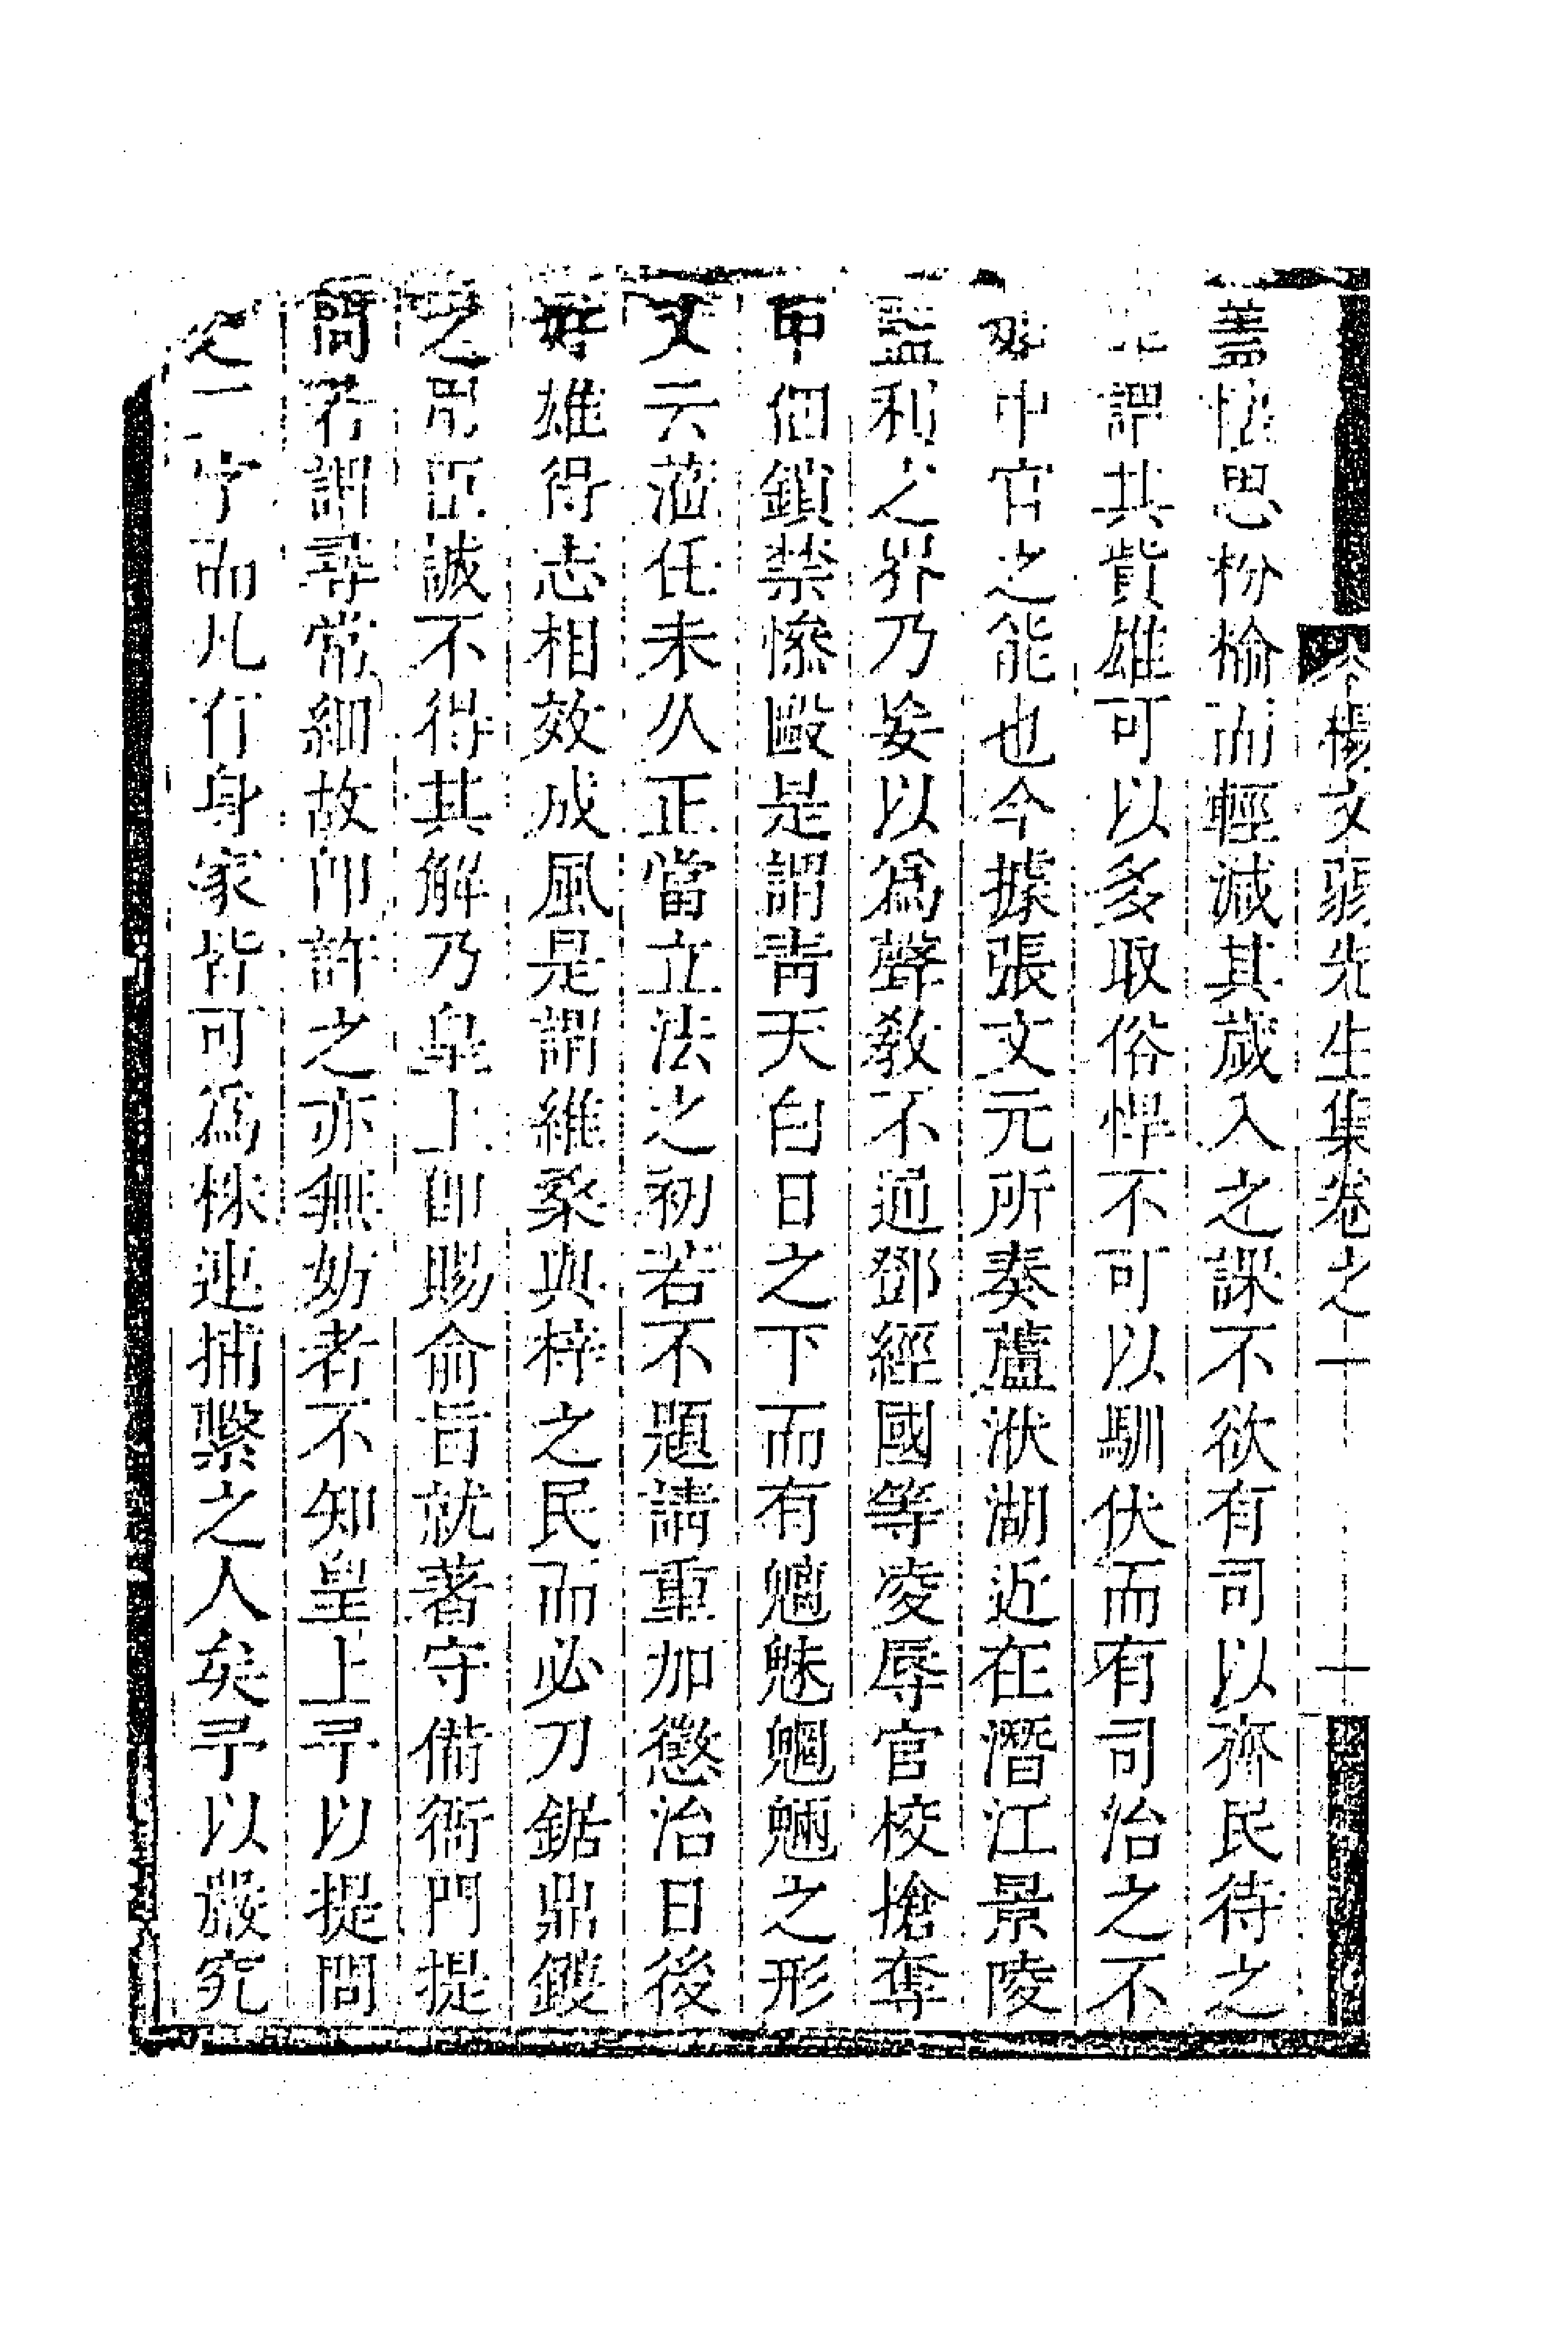 楊文弱先生集卷之一 十
蓋恠思枌榆而輕減其歲入之課不欲有司以齊民待之
謂其貲雄可以多取俗悍不可以馴伏而有司治之不
中官之能也今據張文元所奏蘆洑湖近在潛江景陵
監利之界乃妄以爲聲敎不通鄧經國等凌辱官校搶奪
甲佃鎖禁慘毆是謂靑天白日之下而有魑魅魍魎之形
又云蒞任未久正當立法之初若不題請重加懲治日後
奸雄得志相效成風是謂維桑與梓之民而必刀鋸鼎鑊
之用臣誠不得其解乃皇上卽賜俞旨就著守備衙門提
問若謂尋常細故卽許之亦無妨者不知皇上予以提問
之一字而凡有身家皆可爲株連捕繫之人矣予以嚴究